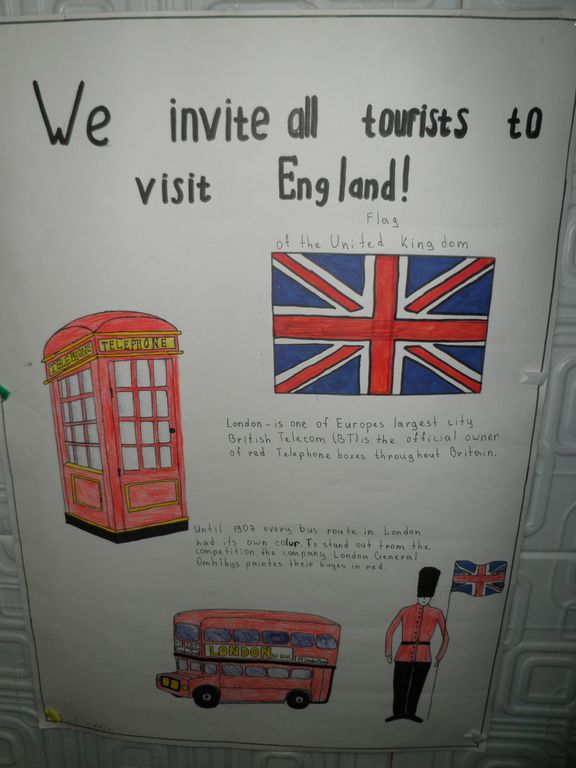 We invite all tourists to
visit England!
Flag
of the United Kingdom
TELEPHONE
TELEPHONE
London - is one of Europes largest city
British Telecom (BT) is the official owner
of red Telephone boxes throughout Britain.
Until 1907 every bus route in London
had its own colur. To stand out from the
competition, the company London General
Omhibys paintes their buyes in red.
LONDON